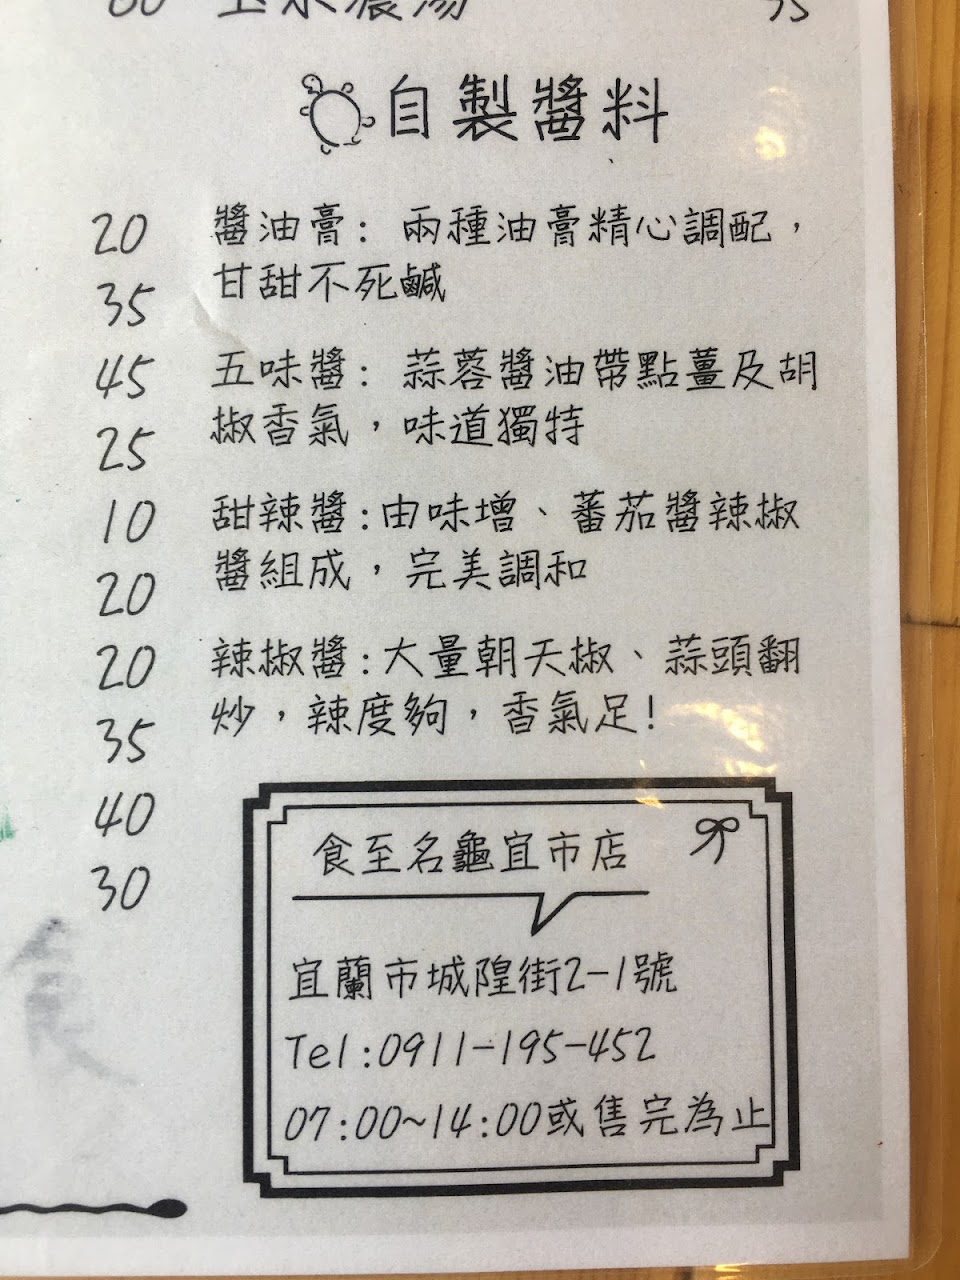 玉米濃湯
自製醬料
20
35
45
25
10
20
20
35
40
30
醬油膏: 兩種油膏精心調配，
甘甜不死鹹
五味醬: 蒜蓉醬油帶點薑及胡
椒香氣，味道獨特
甜辣醬:由味增、蕃茄醬辣椒
醬組成，完美調和
辣椒醬:大量朝天椒、蒜頭翻
炒，辣度夠，香氣足!
食至名龜宜市店
宜蘭市城隍街2-1號
Tel:0911-195-452
07:00~14:00或售完為止
食